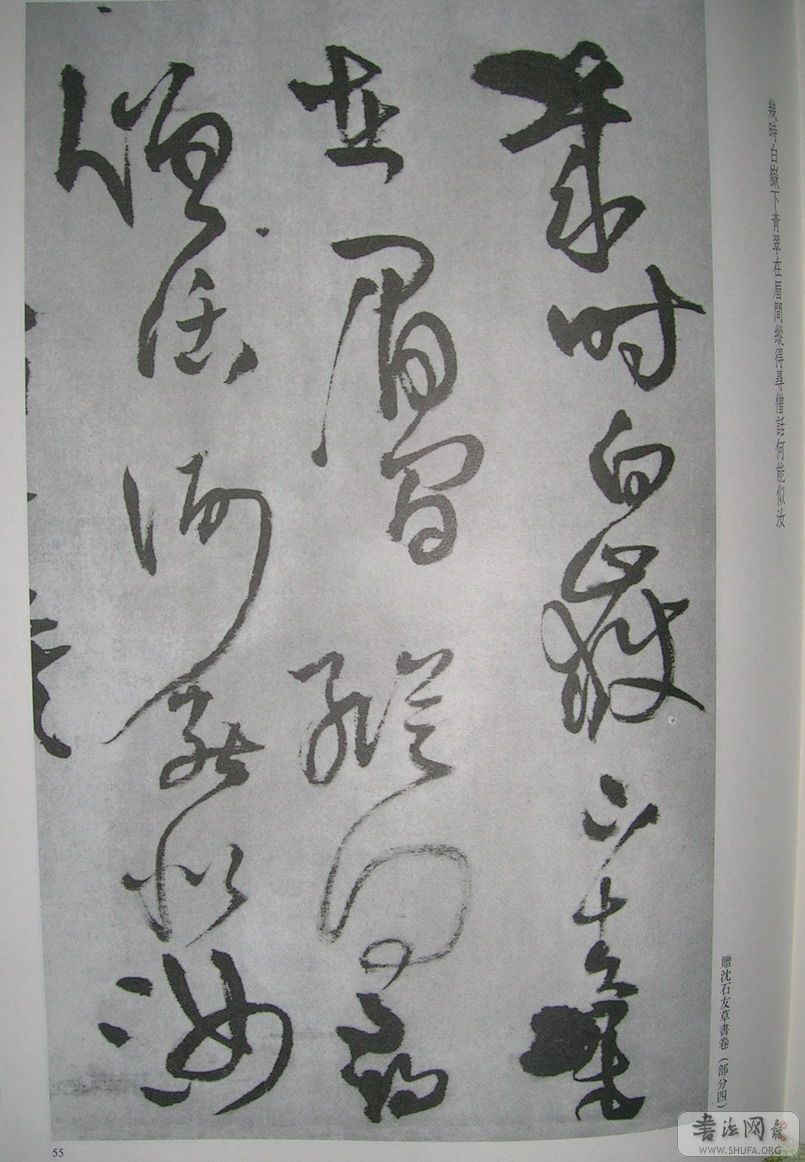 幾時白嶽下青翠在眉間縱得尋僧話何能似汝
贈沈石友草書卷（部分四）
幾時白嶽下青翠
在眉間縱得尋
僧話何能似汝
55
書法网
WWW.SHUFA.ORG